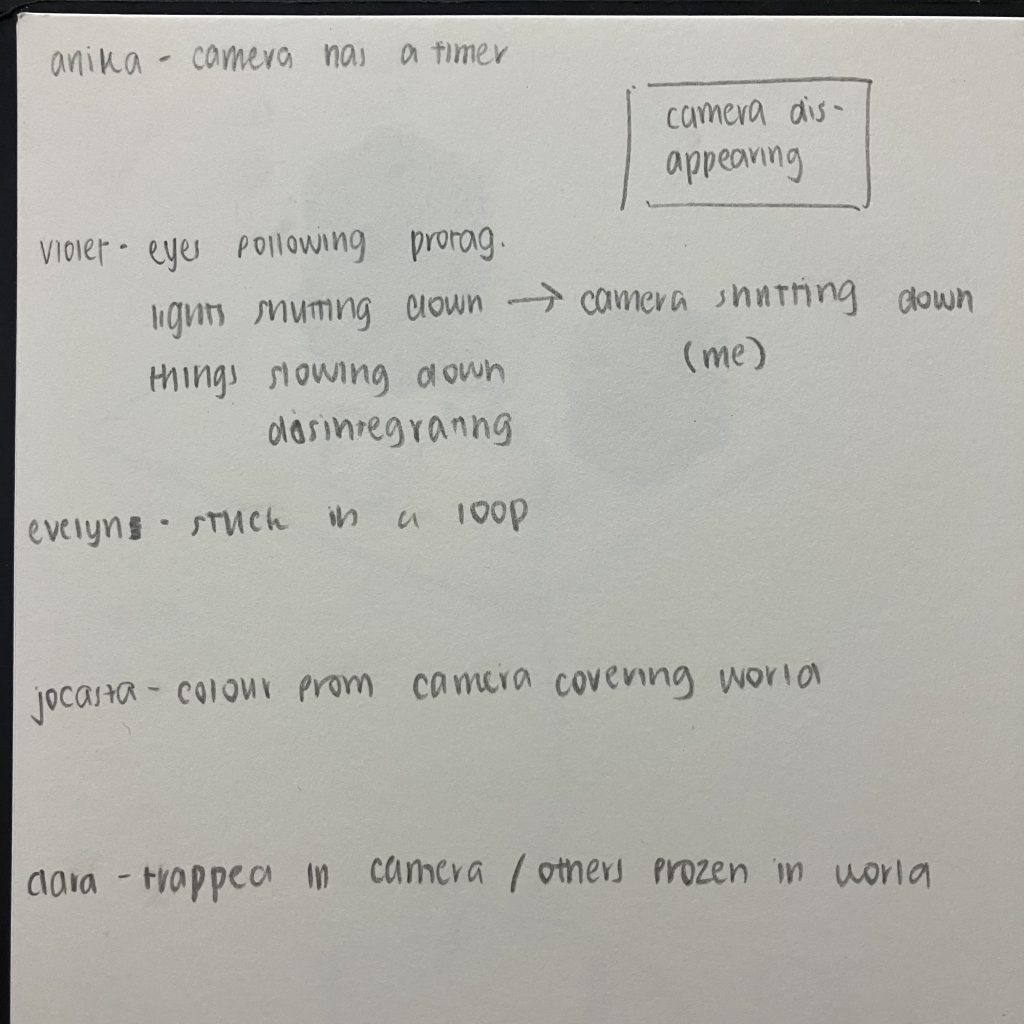 anika - camera has a timer
camera dis-
appearing
violet - eyes following protag.
lights shutting down → camera shutting down
(me)
things slowing down
disintegrating
evelyn - stuck in a loop
jocasta - colour from camera covering world
clara - trapped in camera / others frozen in world